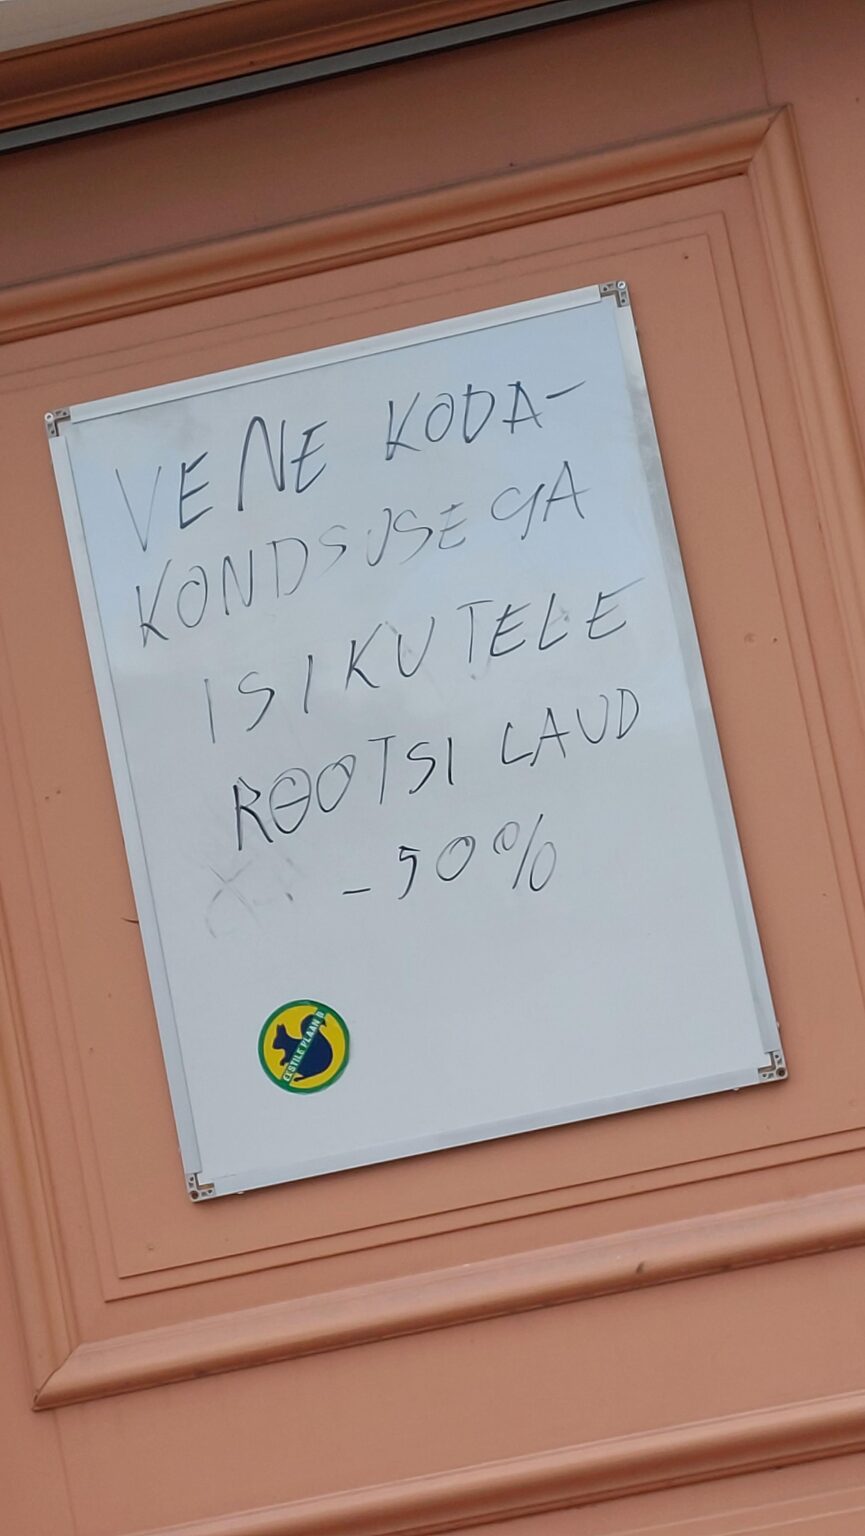 VENE KODA-
KONDSUSEGA
ISIKUTELE
ROOTSI LAUD
- 50%
EESTILE PLAAN B